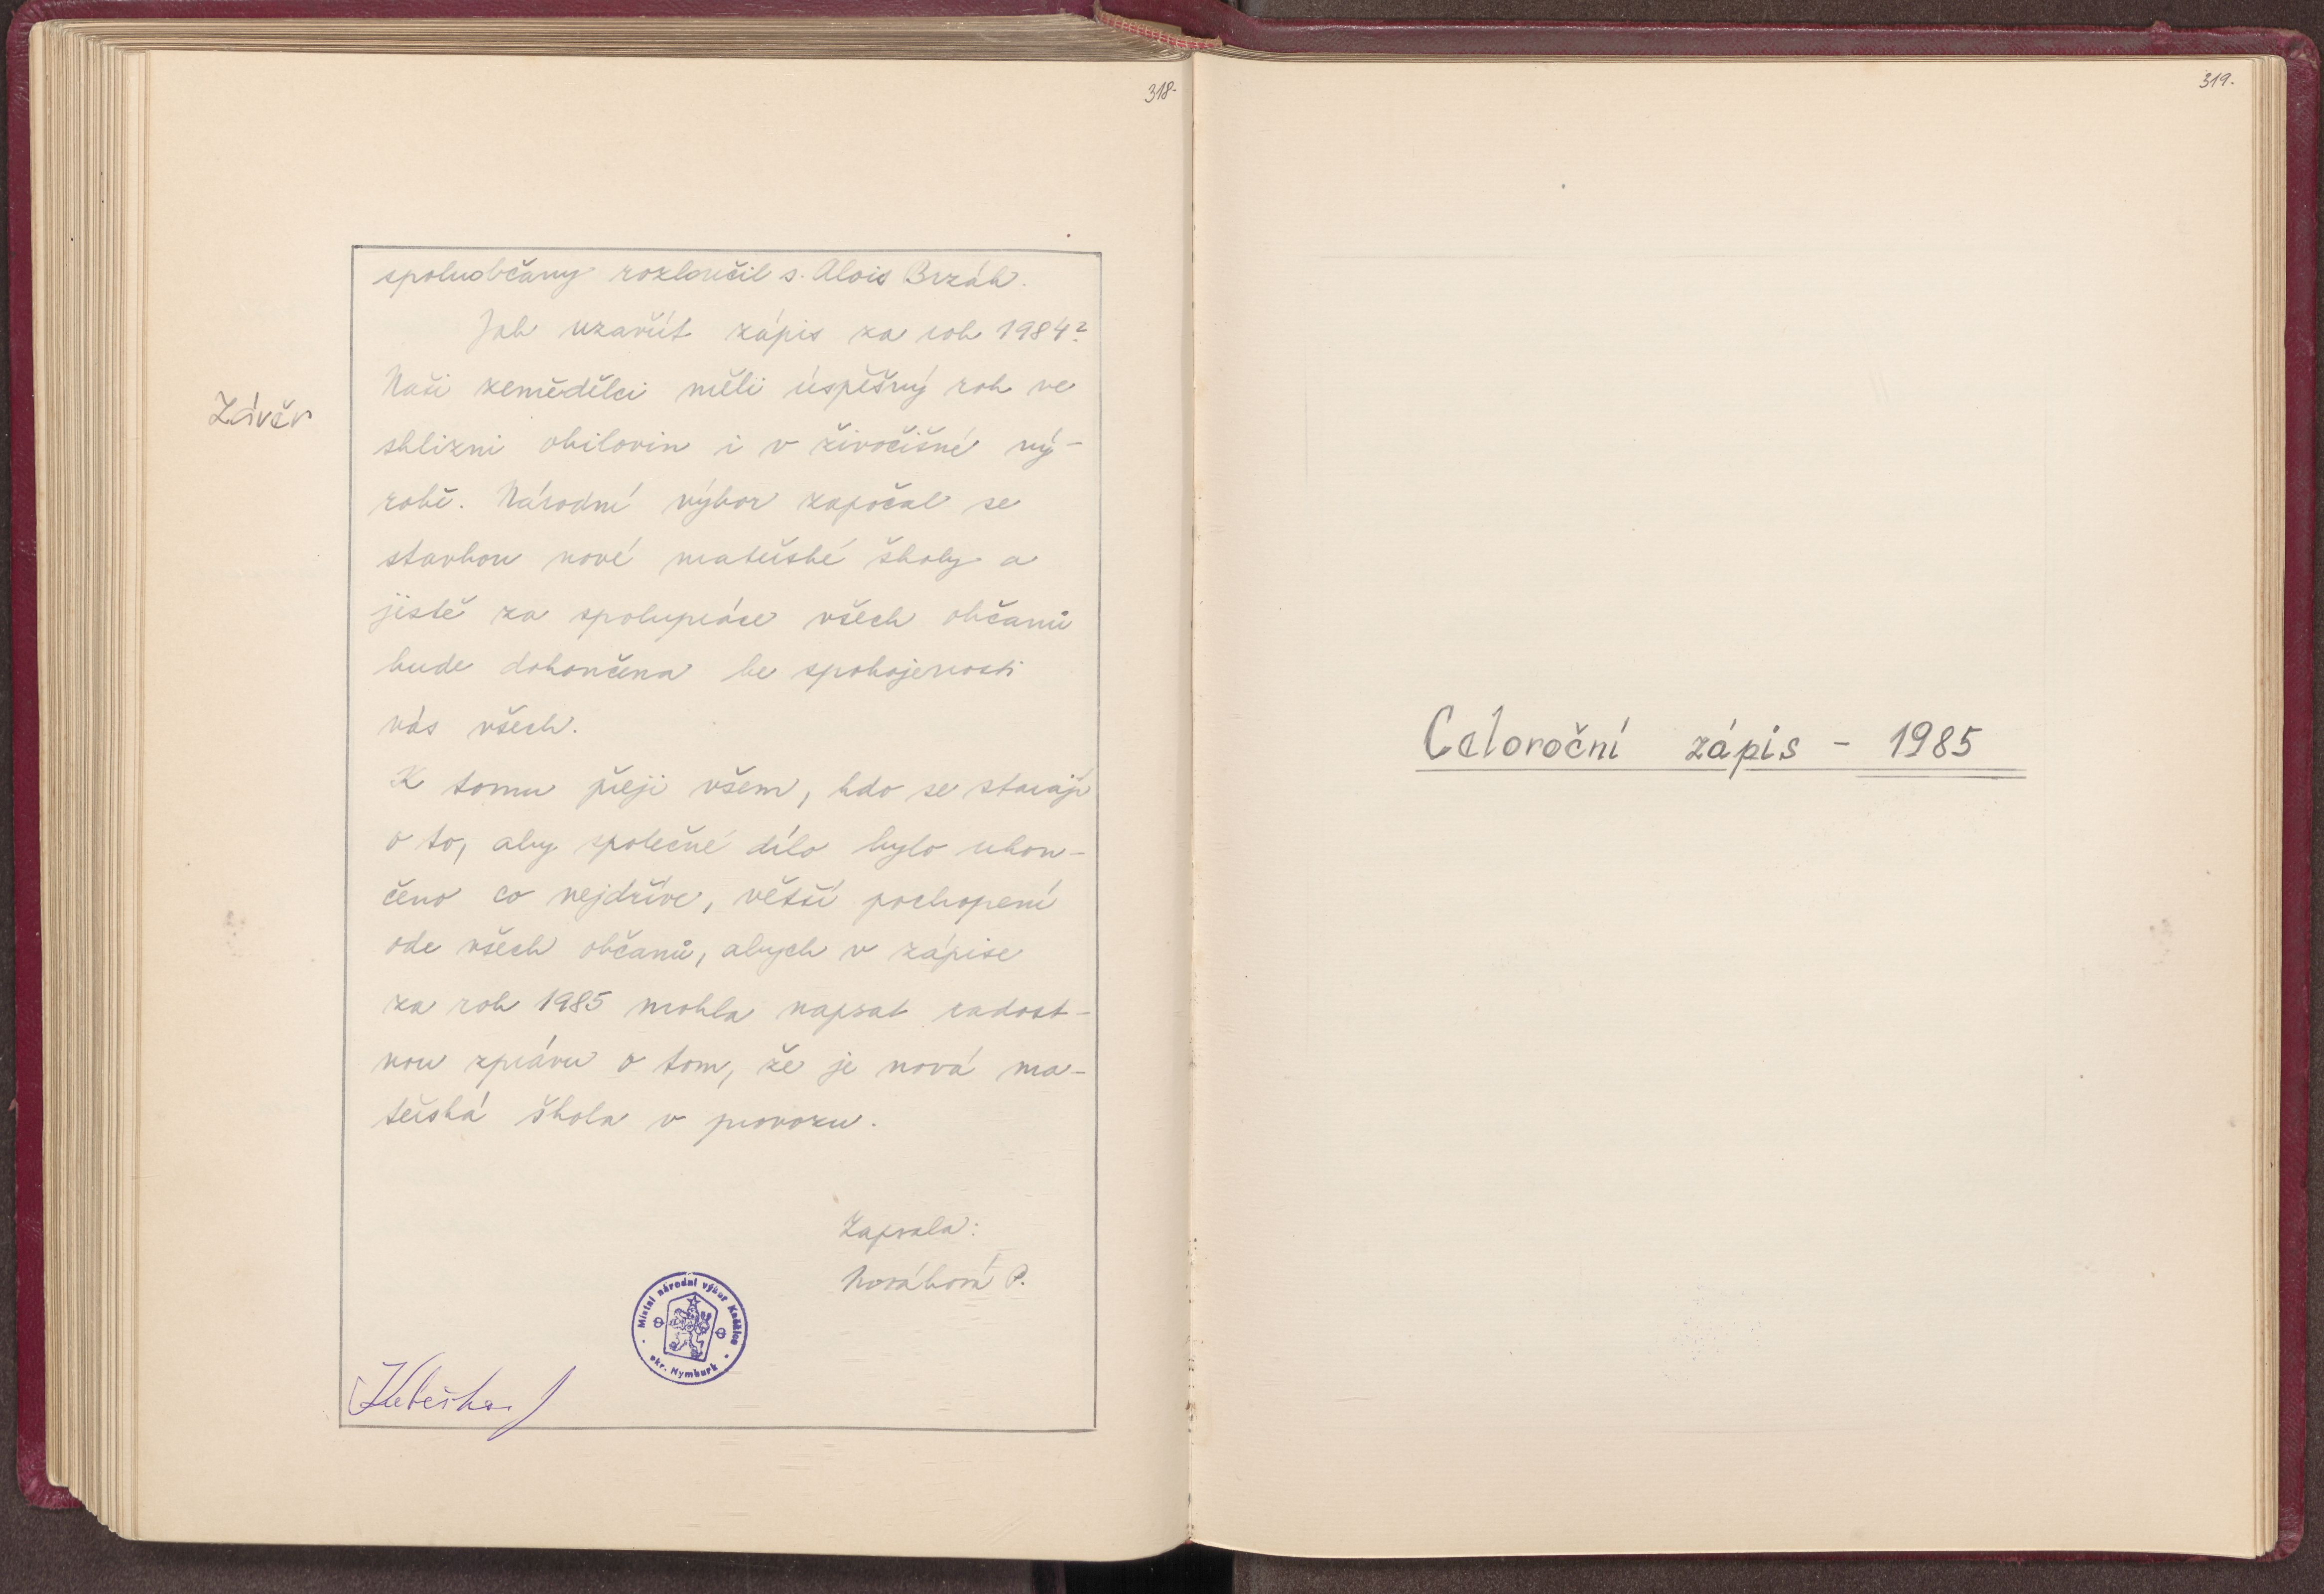 318.
spoluobčany rozloučil s. Alois Brzák.
Jak uzavřít zápis za rok 1984?
Naši zemědělci měli úspěšný rok ve
Závěr
sklizni obilovin i v živočišné vý-
robě. Národní výbor započal se
stavbou nové mateřské školy a
jistě za spolupráce všech občanů
bude dokončena ke spokojenosti
nás všech.
K tomu přeji všem, kdo se starají
o to, aby společné dílo bylo ukon-
čeno co nejdříve, větší pochopení
ode všech občanů, abych v zápise
za rok 1985 mohla napsat radost-
nou zprávu o tom, že je nová ma-
teřská škola v provozu.
Zapsala:
Nováková P.
Místní národní výbor
okr. Nymburk
319.
Celoroční zápis - 1985